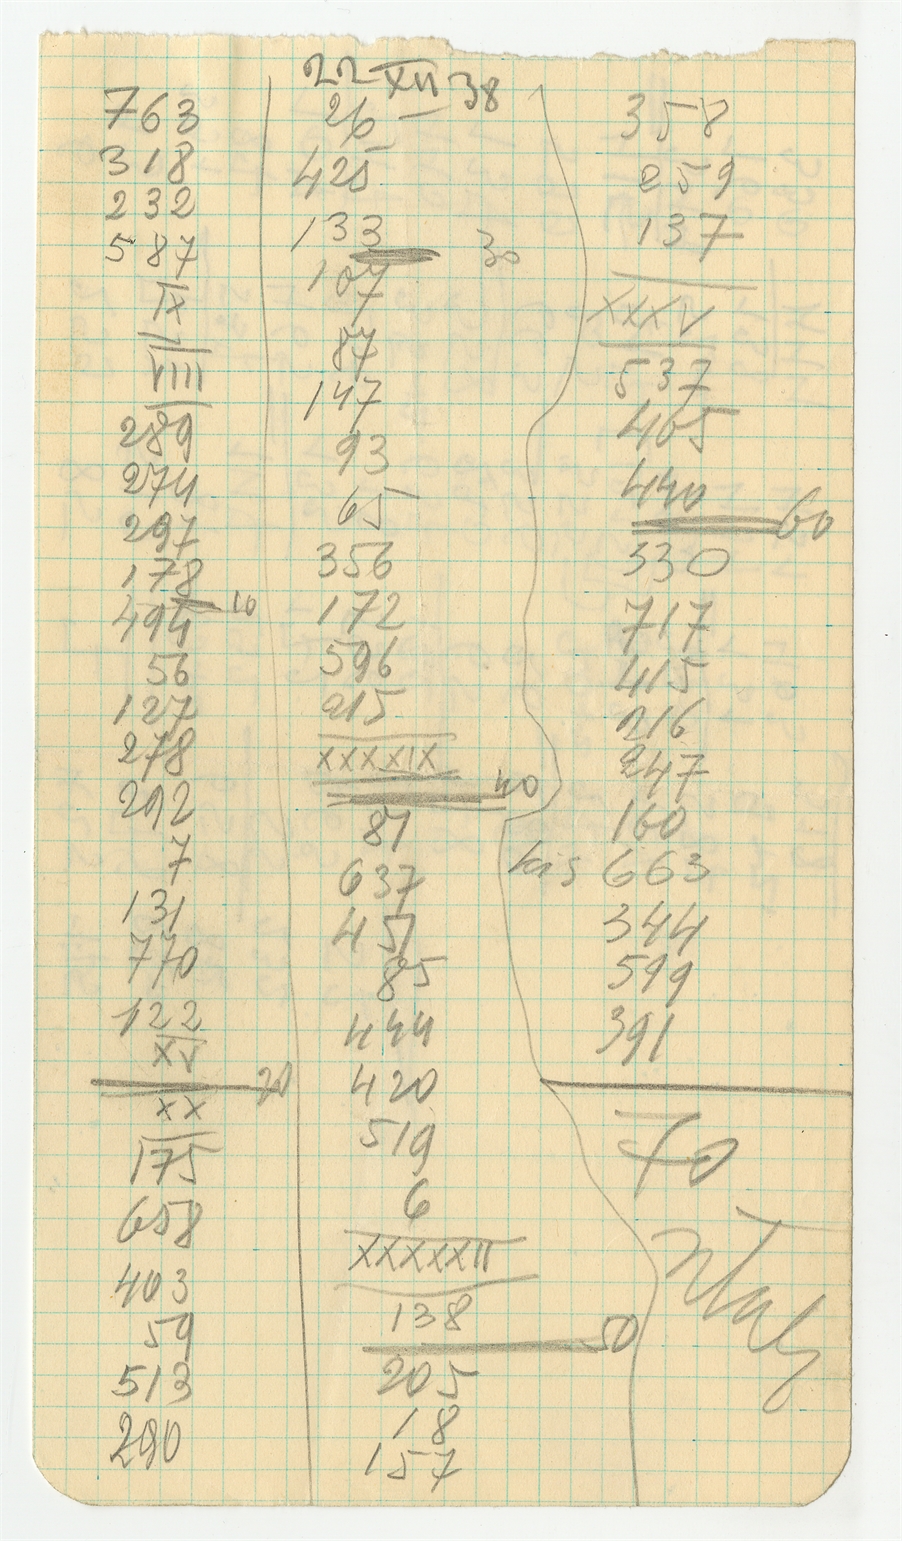 22 XII 38
763
318
232
587
IX
VIII
289
274
297
178
10
494
56
127
278
292
7
131
770
122
XV
20
XX
175
658
403
59
513
290
26
425
133
30
107
87
147
93
65
356
172
596
215
XXXXIX
40
87
637
451
85
444
420
519
6
XXXXXII
138
50
205
18
157
358
259
137
XXXV
537
465
440
60
330
717
415
216
247
160
663
344
599
391
70